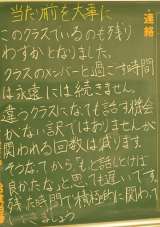 当たり前を大事に
このクラスでいるのも残り
わずかとなりました。
クラスのメンバーと過ごす時間
は永遠には続きません。
違うクラスになっても話す機会
がない訳ではありませんが
関われる回数は減ります。
そうなってから、もっと話しとけば
良かったなと思っても遅いです。
残された時間で積極的に関わって
いきましょう
連絡